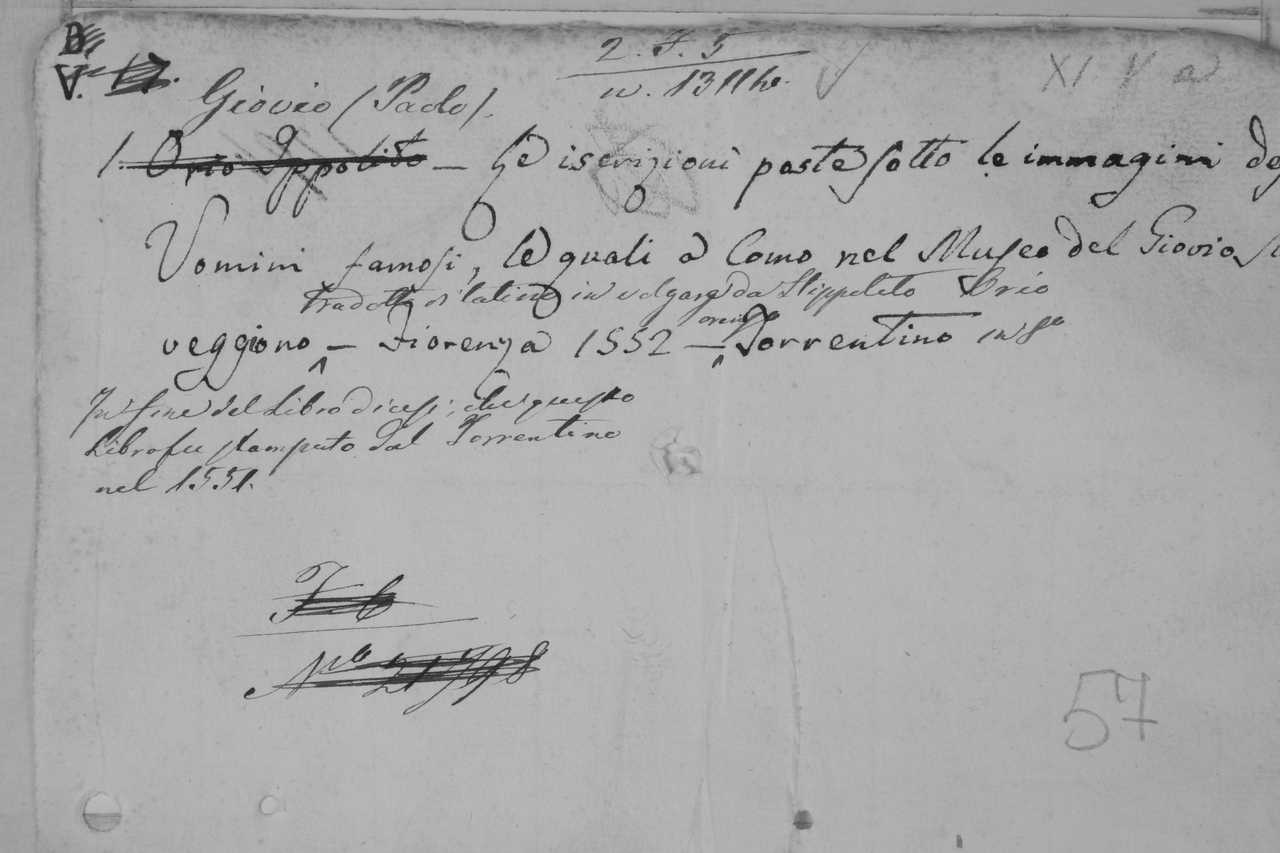 B
2. F. 5
XI V a
V.
Giovio (Paolo).
1. Orio Ippolito — Le iscrizioni poste sotto le immagini
Uomini famosi, le quali a Como nel Museo del Giovio
Tradotte di latino in volgare da Hippolito Orio
veggiono — Fiorenza 1552 — Torrentino in 8°
In fine del Libro dicesi, che questo
Libro fu stampato dal Torrentino
nel 1551.
F C
N° 21798
57